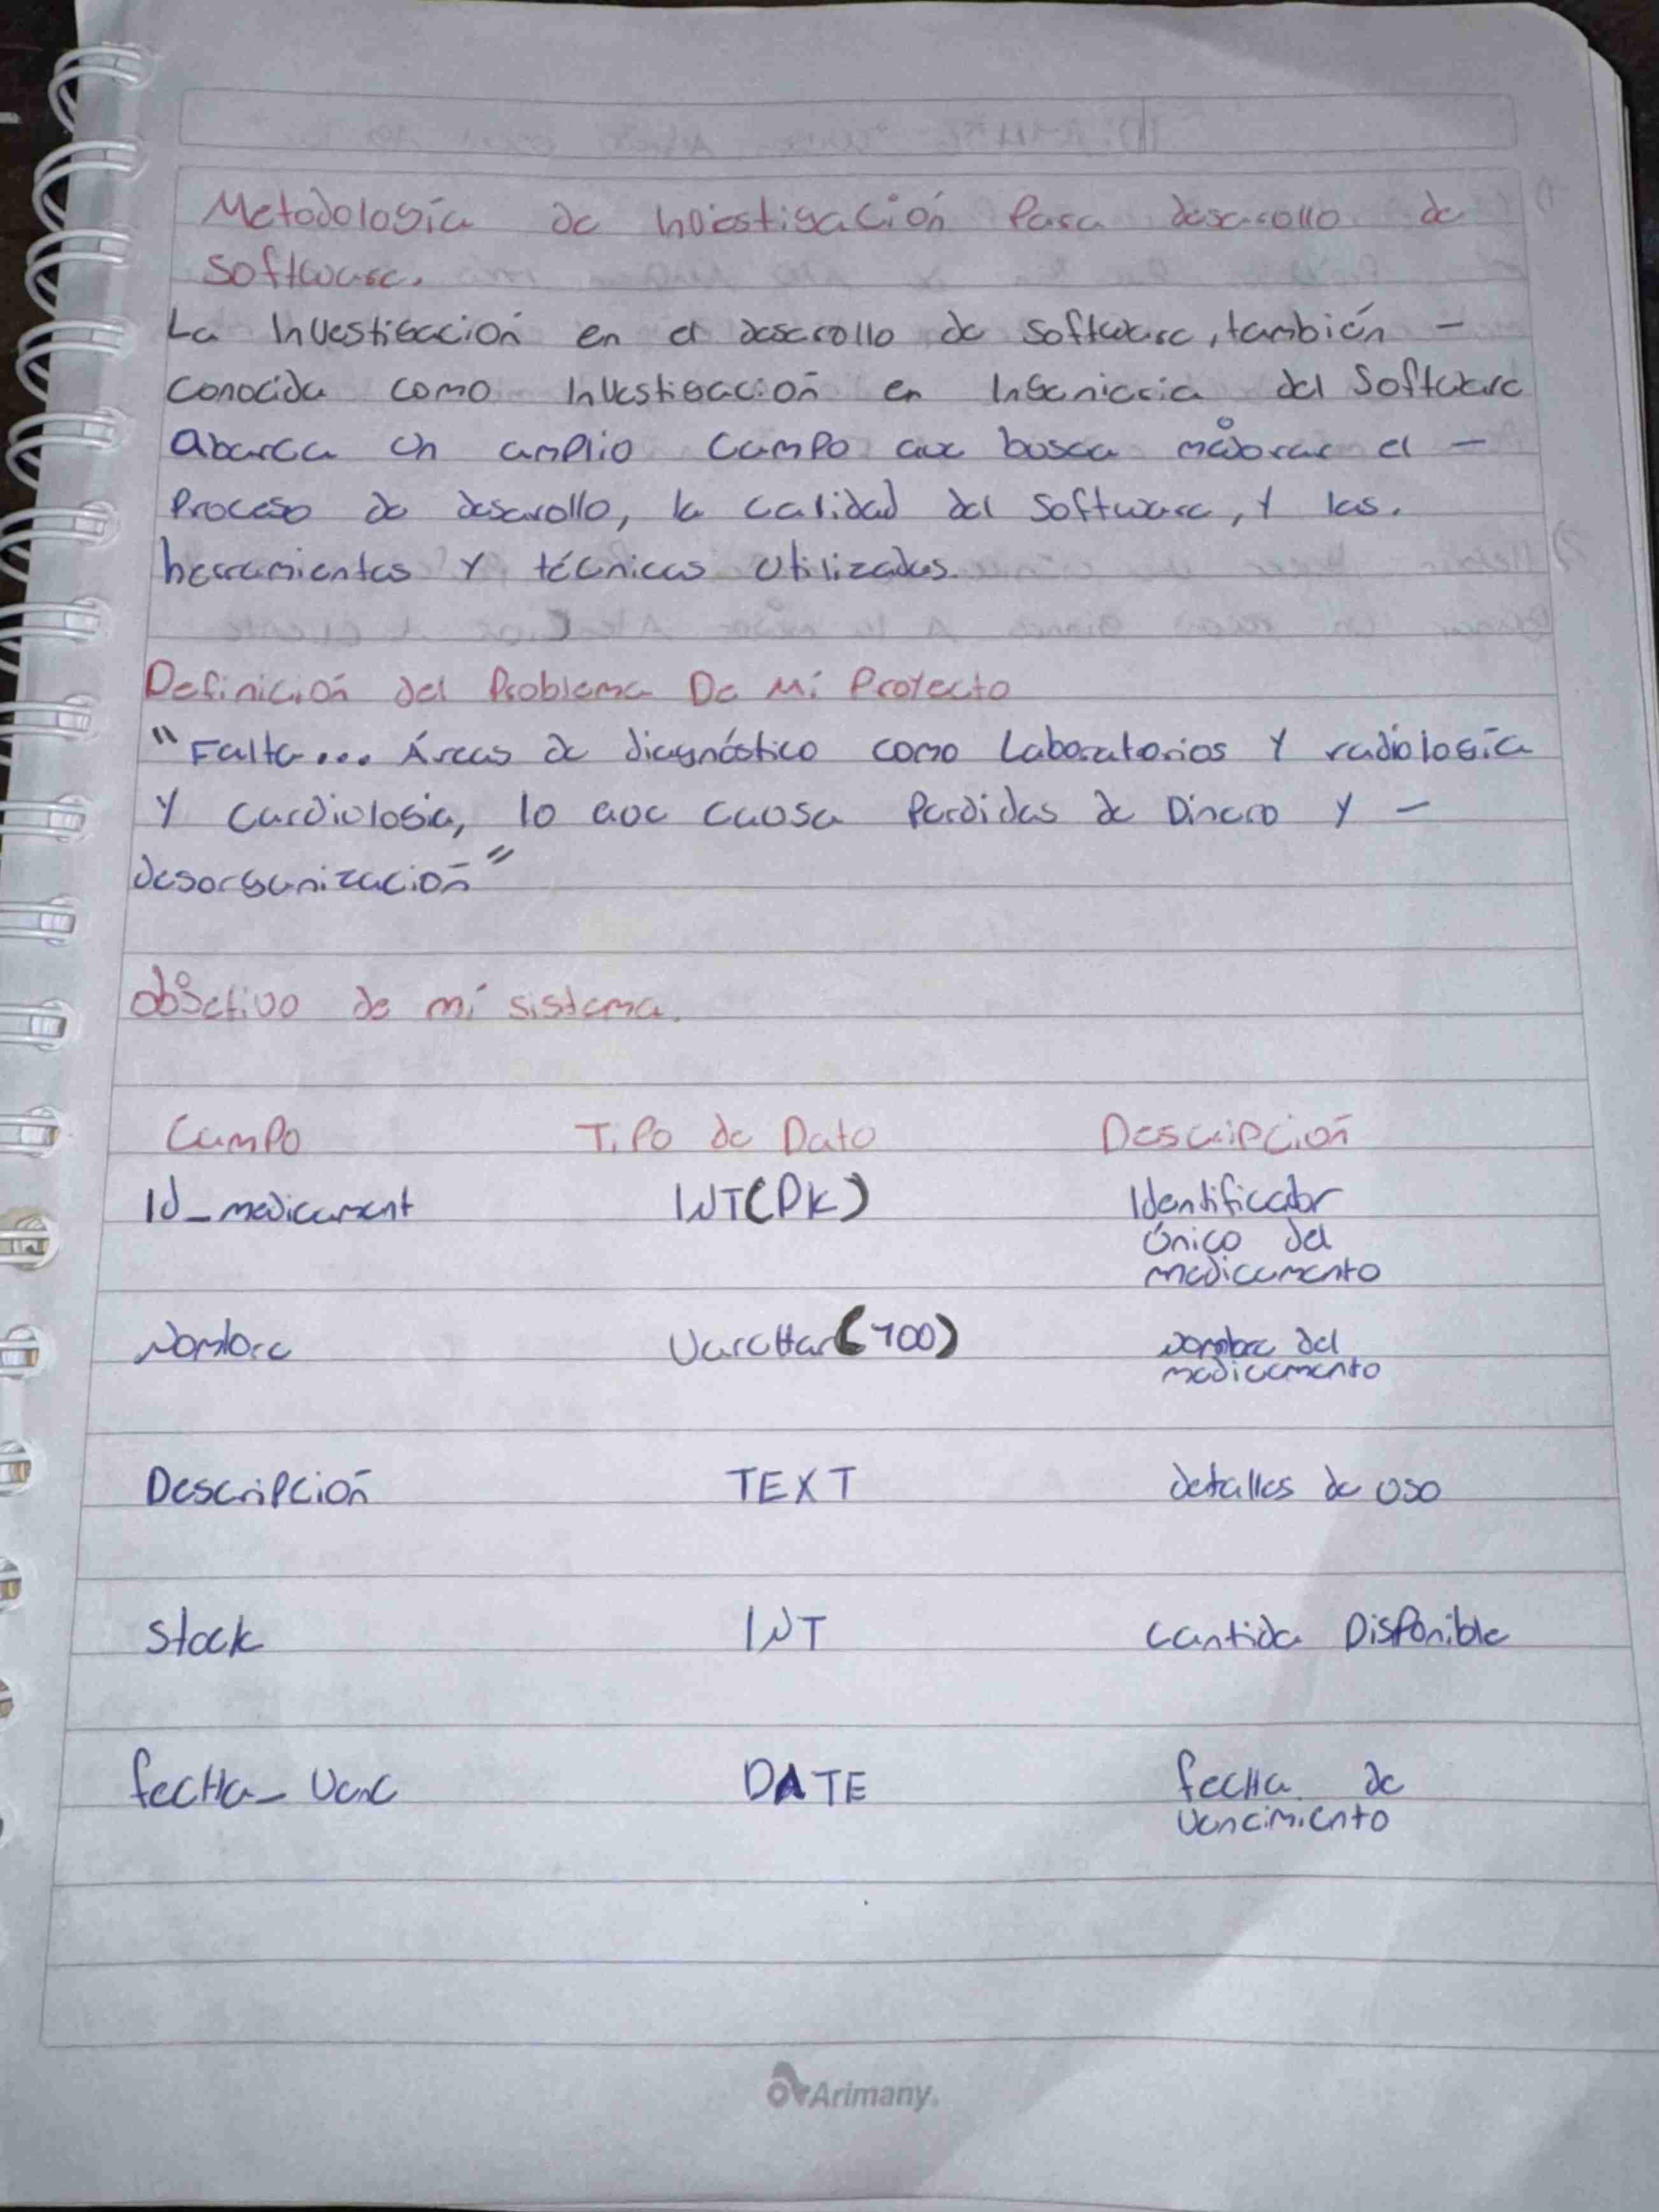 Metodología de Investigación Para desarollo de
software.
La Investigación en el desarrollo de software, también -
conocida como Investigación en Ingeniería del Software
abarca un amplio campo que busca mejorar el -
Proceso de desarollo, la calidad del software, y las.
herramientas y técnicas utilizadas.
Definición del Problema De Mi Proyecto
"Falta... Áreas de diagnóstico como Laboratorios y radiología
y cardiología, lo que causa Perdidas de Dinero y -
desorganización"
objetivo de mi sistema.
Campo Tipo de Dato Descripción
Id_medicament INT(PK) Identificador
Único del
medicamento
Nombre VarcHar(100) Nombre del
medicamento
Descripción TEXT detalles de uso
Stock INT cantida Disponible
fecHa_Venc DATE fecHa de
Vencimiento
Arimany.